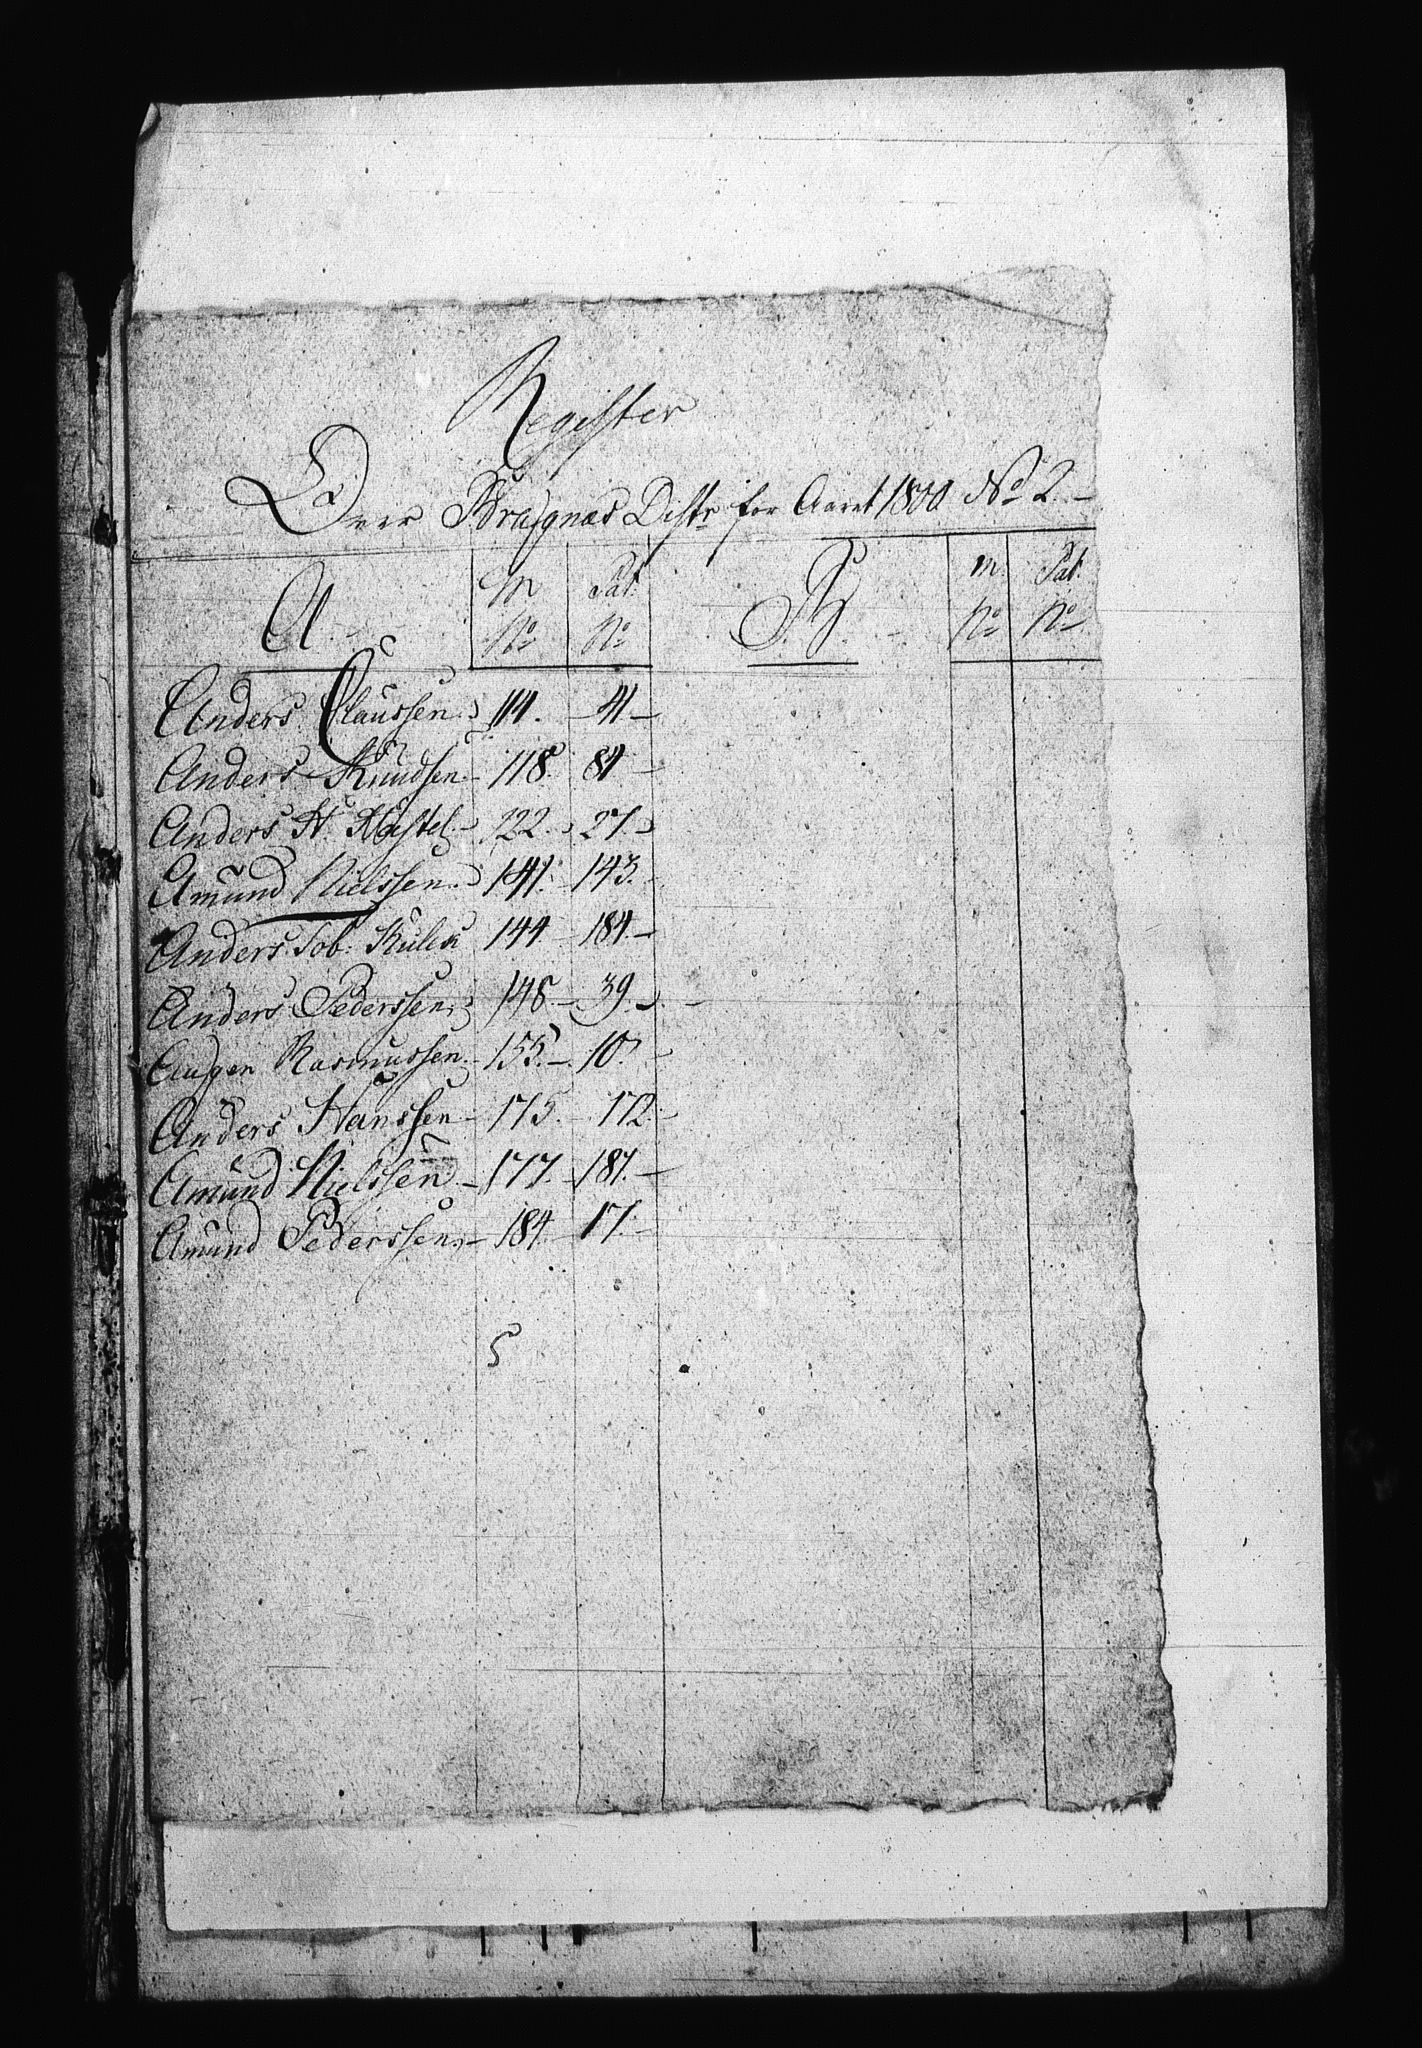 Register
Over Bragnæs Distr for Aaret 1800 No 2
A. m No Pat: No B. m No Pat: No
Anders Claussen 114. 41
Anders Knudsen 118. 84
Anders H. Kastel 122. 27
Amund Nielssen 141. 143.
Anders Tob: 144 184.
Anders Pederssen 148. 39
Rasmussen 155. 10.
Anders Hanssen 175. 172.
Amund Nielssen 177. 187.
Amund Pederssen 184. 17.
5